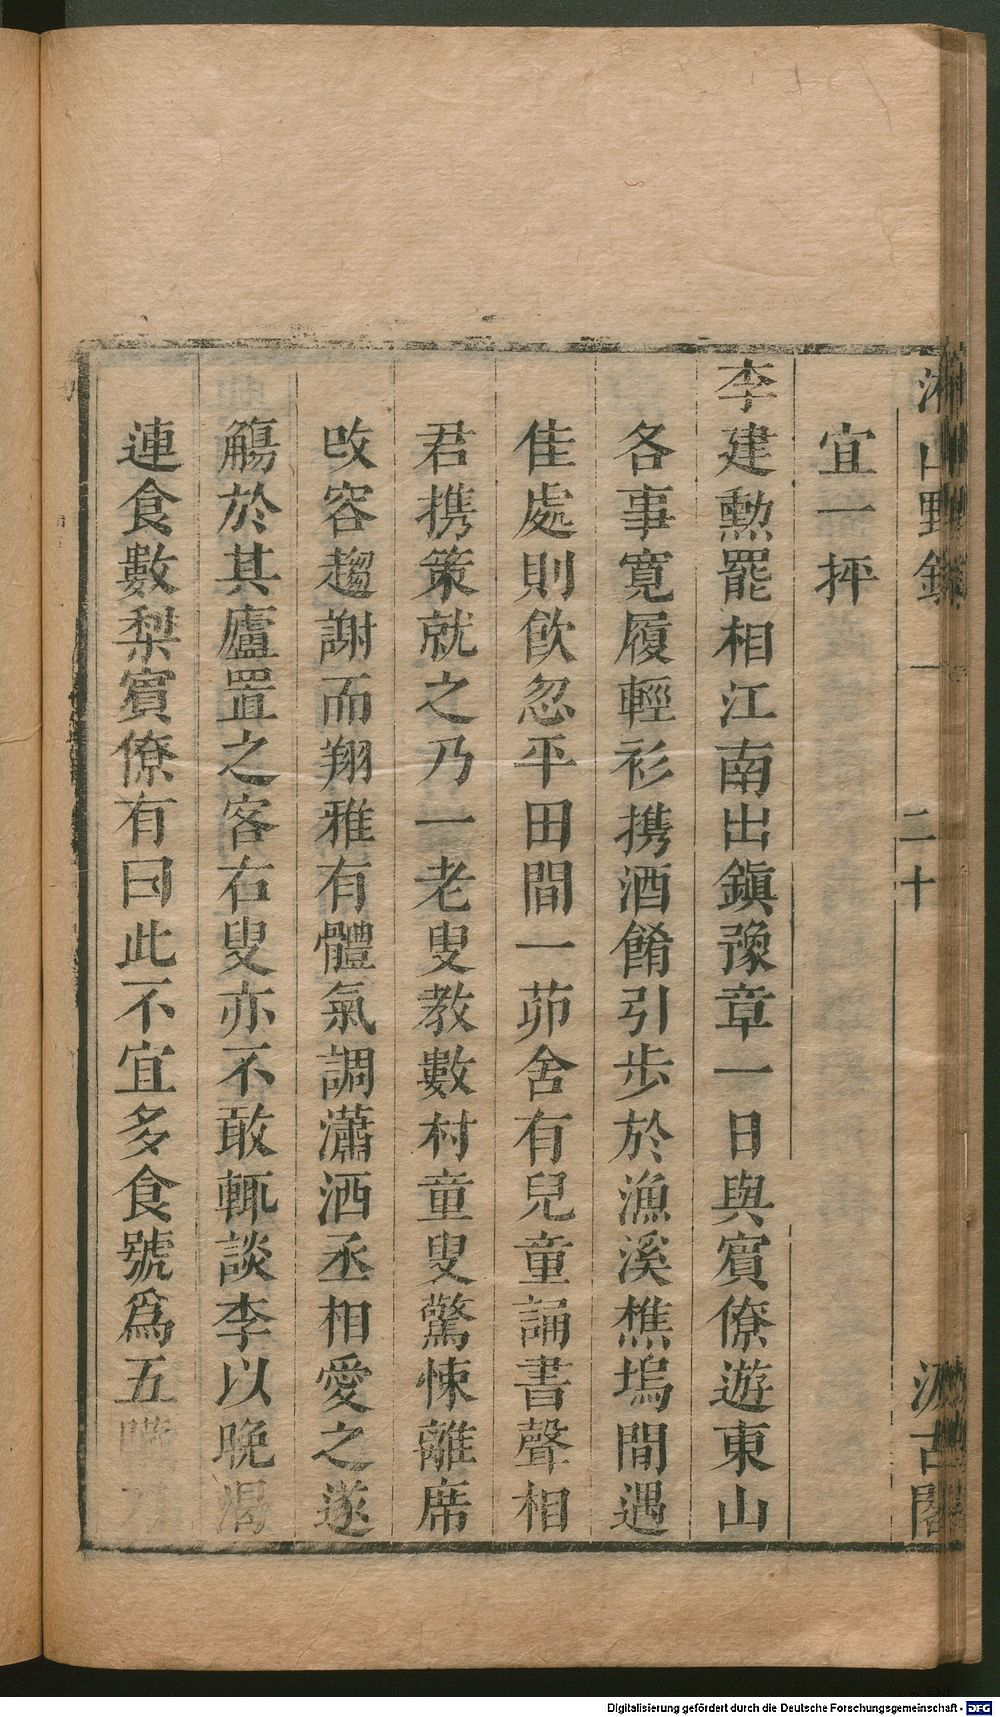 湘山野錄 一 二十 汲古閣
宜一抨
李建勲罷相江南出鎭豫章一日與賔僚遊東山
各事寬履輕衫携酒餚引步於漁溪樵塢間遇
佳處則飲忽平田間一茆舍有兒童誦書聲相
君携策就之乃一老叟教數村童叟驚悚離席
改容趨謝而翔雅有體氣調瀟洒丞相愛之遂
觴於其廬置之客右叟亦不敢輒談李以晚渴
連食數梨賔僚有曰此不宜多食號爲五
Digitalisierung gefördert durch die Deutsche Forschungsgemeinschaft - DFG